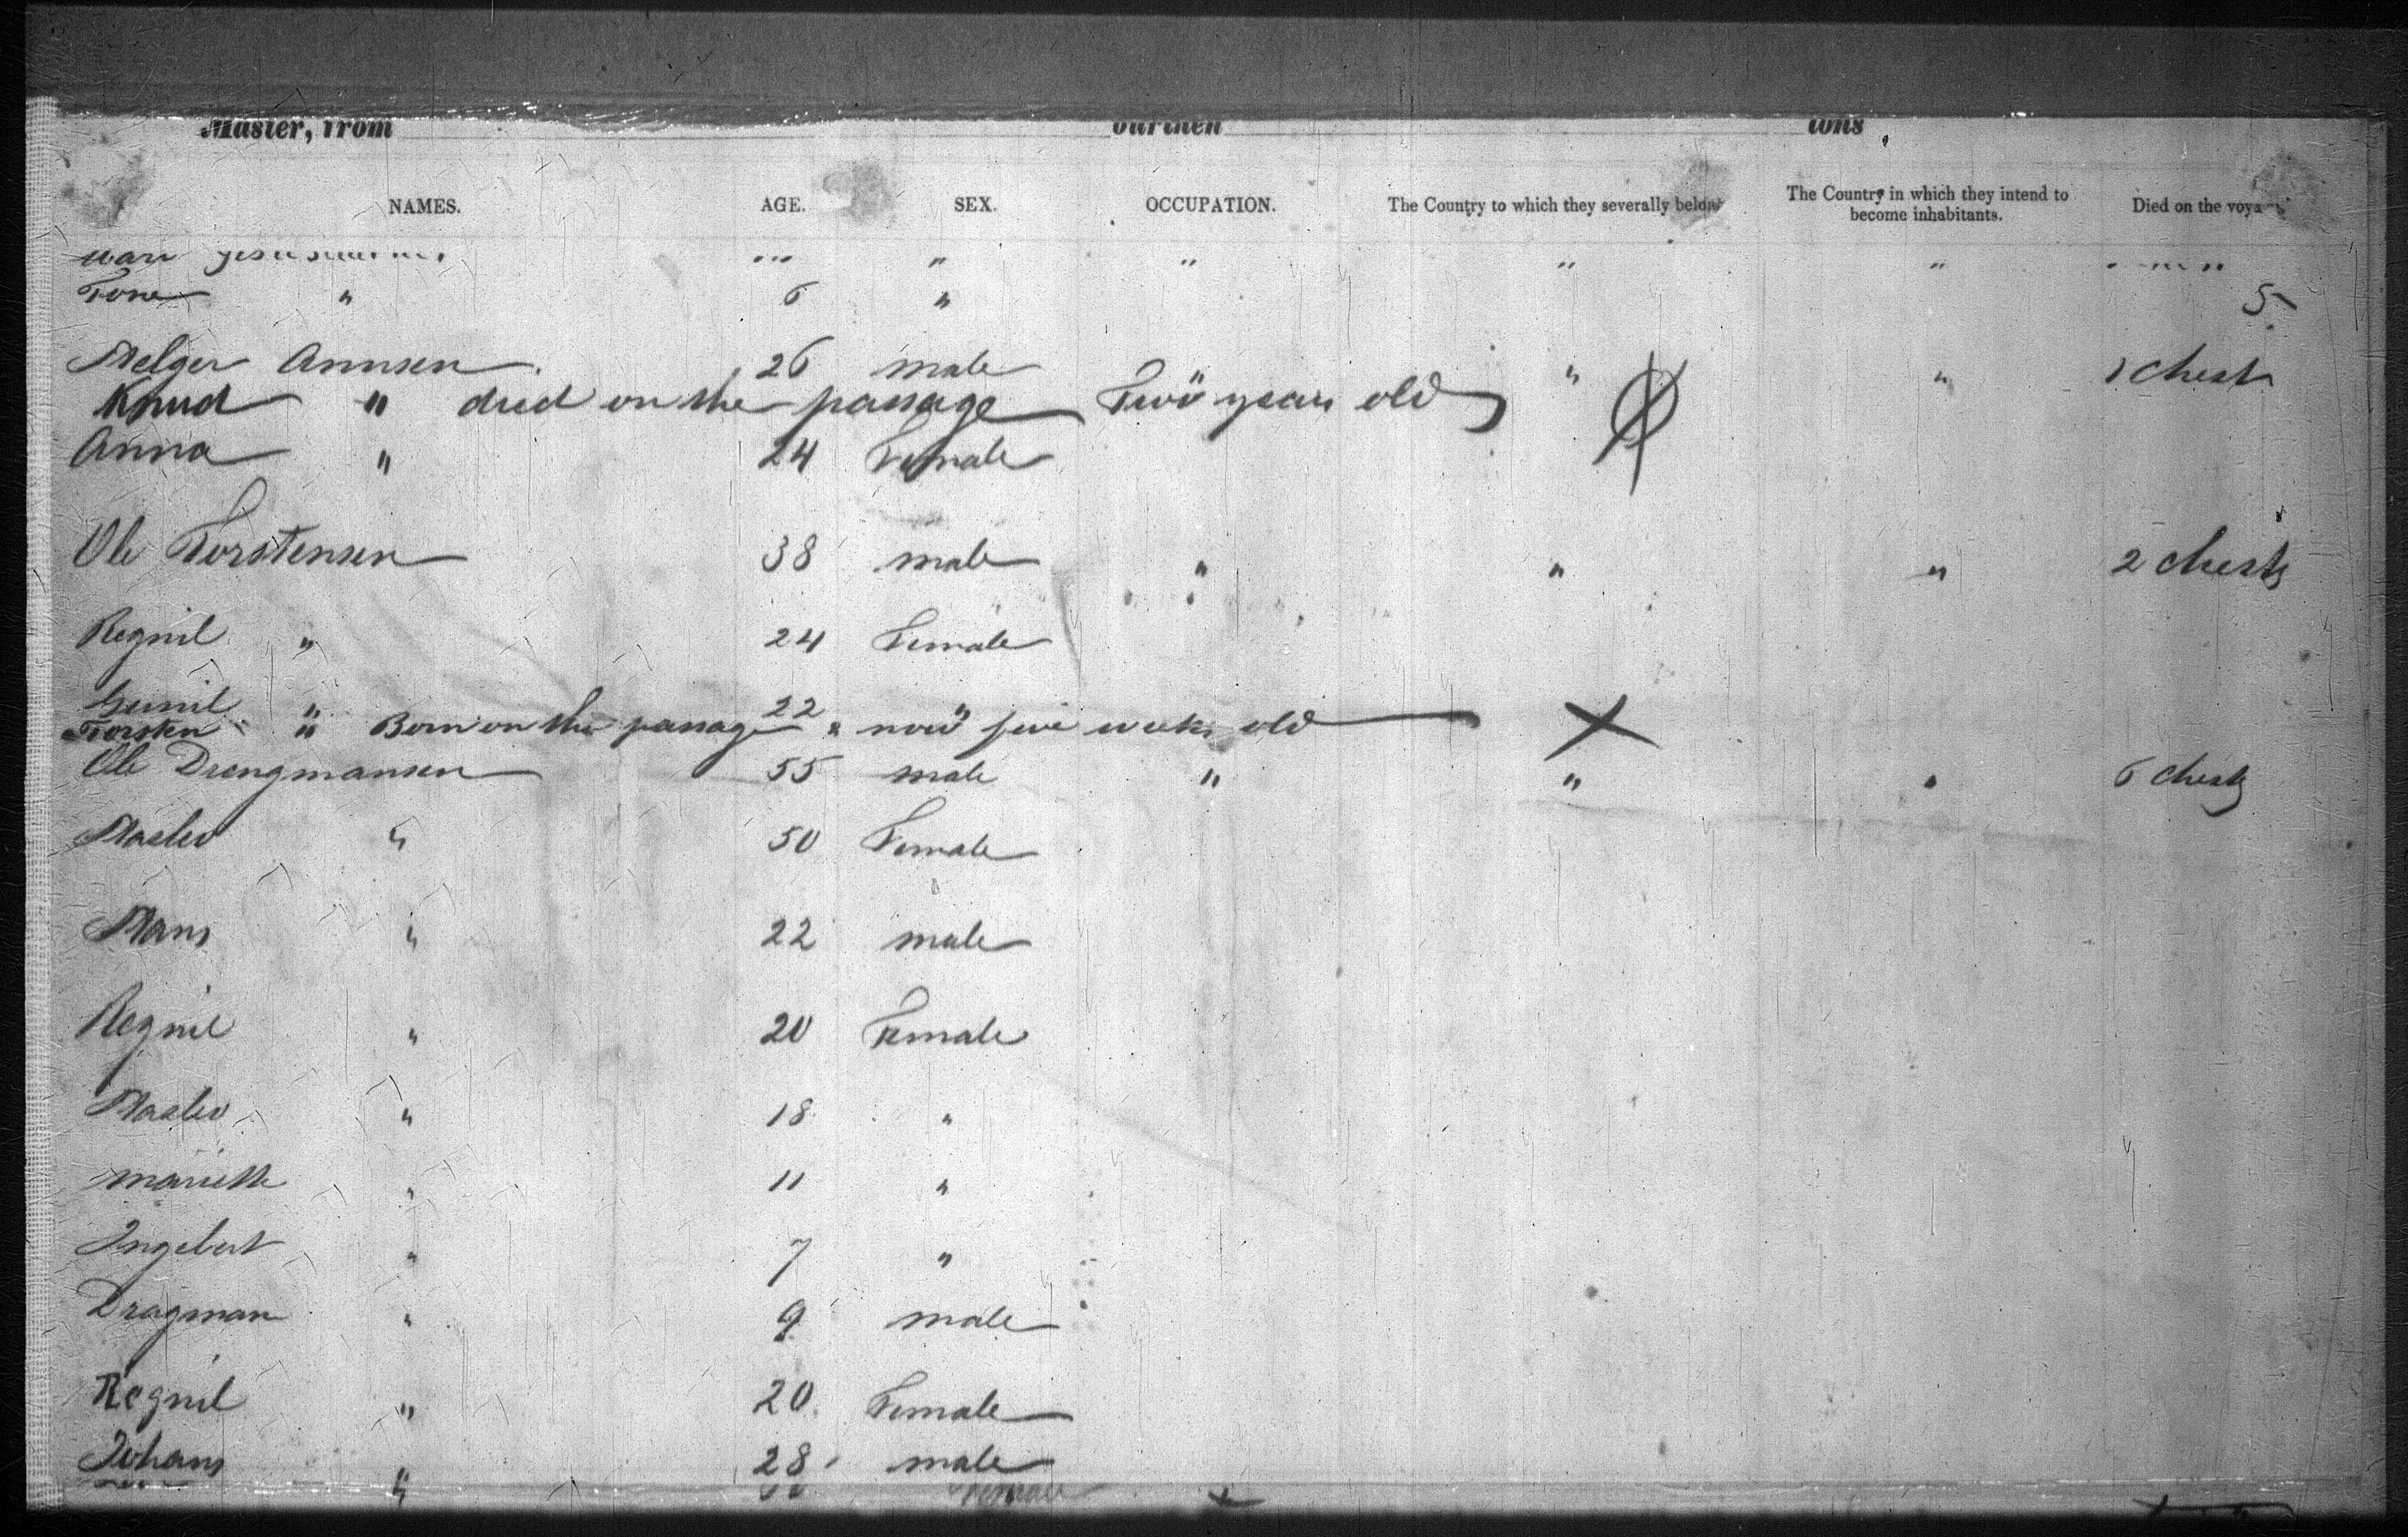 Master, from burthen tons
NAMES. AGE. SEX. OCCUPATION. The Country to which they severally belong The Country in which they intend to become inhabitants. Died on the voyage
" " " "
Tone " 6 " 5
Helger Annsen 26 male " " " 1 Chest
Knud " died on the passage Two years old
Anna " 24 Female
Ole Torstensen 38 male " " " 2 Chests
Regnil " 24 Female
Gunil " 22 "
Torsten " Born on the passage & now five weeks old
Ole Drengmansen 55 male " " " 6 Chests
Aaslev " 50 Female
Hans " 22 male
Regnil " 20 Female
Aaslev " 18 "
mariette " 11 "
Ingebert " 7 "
Dragman " 9 male
Regnil " 20 Female
Johans " 28 male
" Female